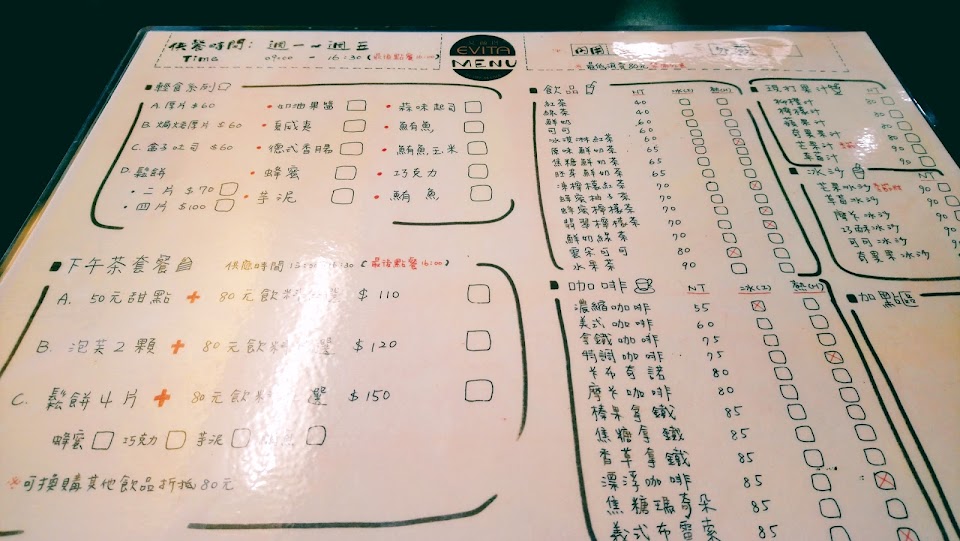 供餐時間: 週一~週五
Time 09:00 - 16:30 (最後點餐16:00)
EVITA
MENU
內用
最低消費80元
■輕食系列
A.厚片$60 •奶油果醬 •蒜味起司
B.焗烤厚片$60 •夏威夷 •鮪魚
C.盒子吐司$60 •德式香腸 •鮪魚玉米
D.鬆餅 •蜂蜜 •巧克力
•二片$70 •芋泥 •鮪魚
•四片$100
■下午茶套餐 供應時間 16:30 (最後點餐16:00)
A. 50元甜點 + 80元飲料 $110
B. 泡芙2顆 + 80元飲料 $120
C. 鬆餅4片 + 80元飲料 $150
蜂蜜 巧克力 芋泥
※可換購其他飲品折抵80元
■飲品 NT 冰(I) 熱(H)
紅茶 40
綠茶 40
鮮奶 60
可可 60
冰淇淋紅茶 60
原味鮮奶茶 65
焦糖鮮奶茶 65
胚芽鮮奶茶 65
凍檸檬紅茶 70
蜂蜜柚子茶 70
蜂蜜檸檬茶 70
翡翠檸檬茶 70
鮮奶綠茶 70
雲朵可可 80
水果茶 90
■咖啡 NT 冰(I) 熱(H)
濃縮咖啡 55
美式咖啡 60
拿鐵咖啡 75
特調咖啡 75
卡布奇諾 80
摩卡咖啡 80
榛果拿鐵 85
焦糖拿鐵 85
香草拿鐵 85
漂浮咖啡 85
焦糖瑪奇朵 85
義式布雷索 85
■現打果汁 NT
柳橙汁 80
檸檬汁
蘋果汁 80
奇異果汁 80
芒果汁 90
草莓汁 90
■冰沙 NT
芒果冰沙 90
草莓冰沙 90
摩卡冰沙 90
巧酥冰沙 90
可可冰沙 90
奇異果冰沙 90
■加點區